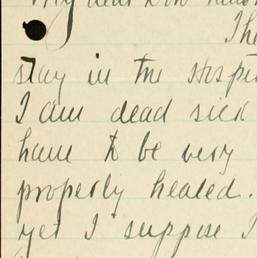 My dear
The
stay in the
I am dead sick
have to be very
properly healed.
yet I suppose I